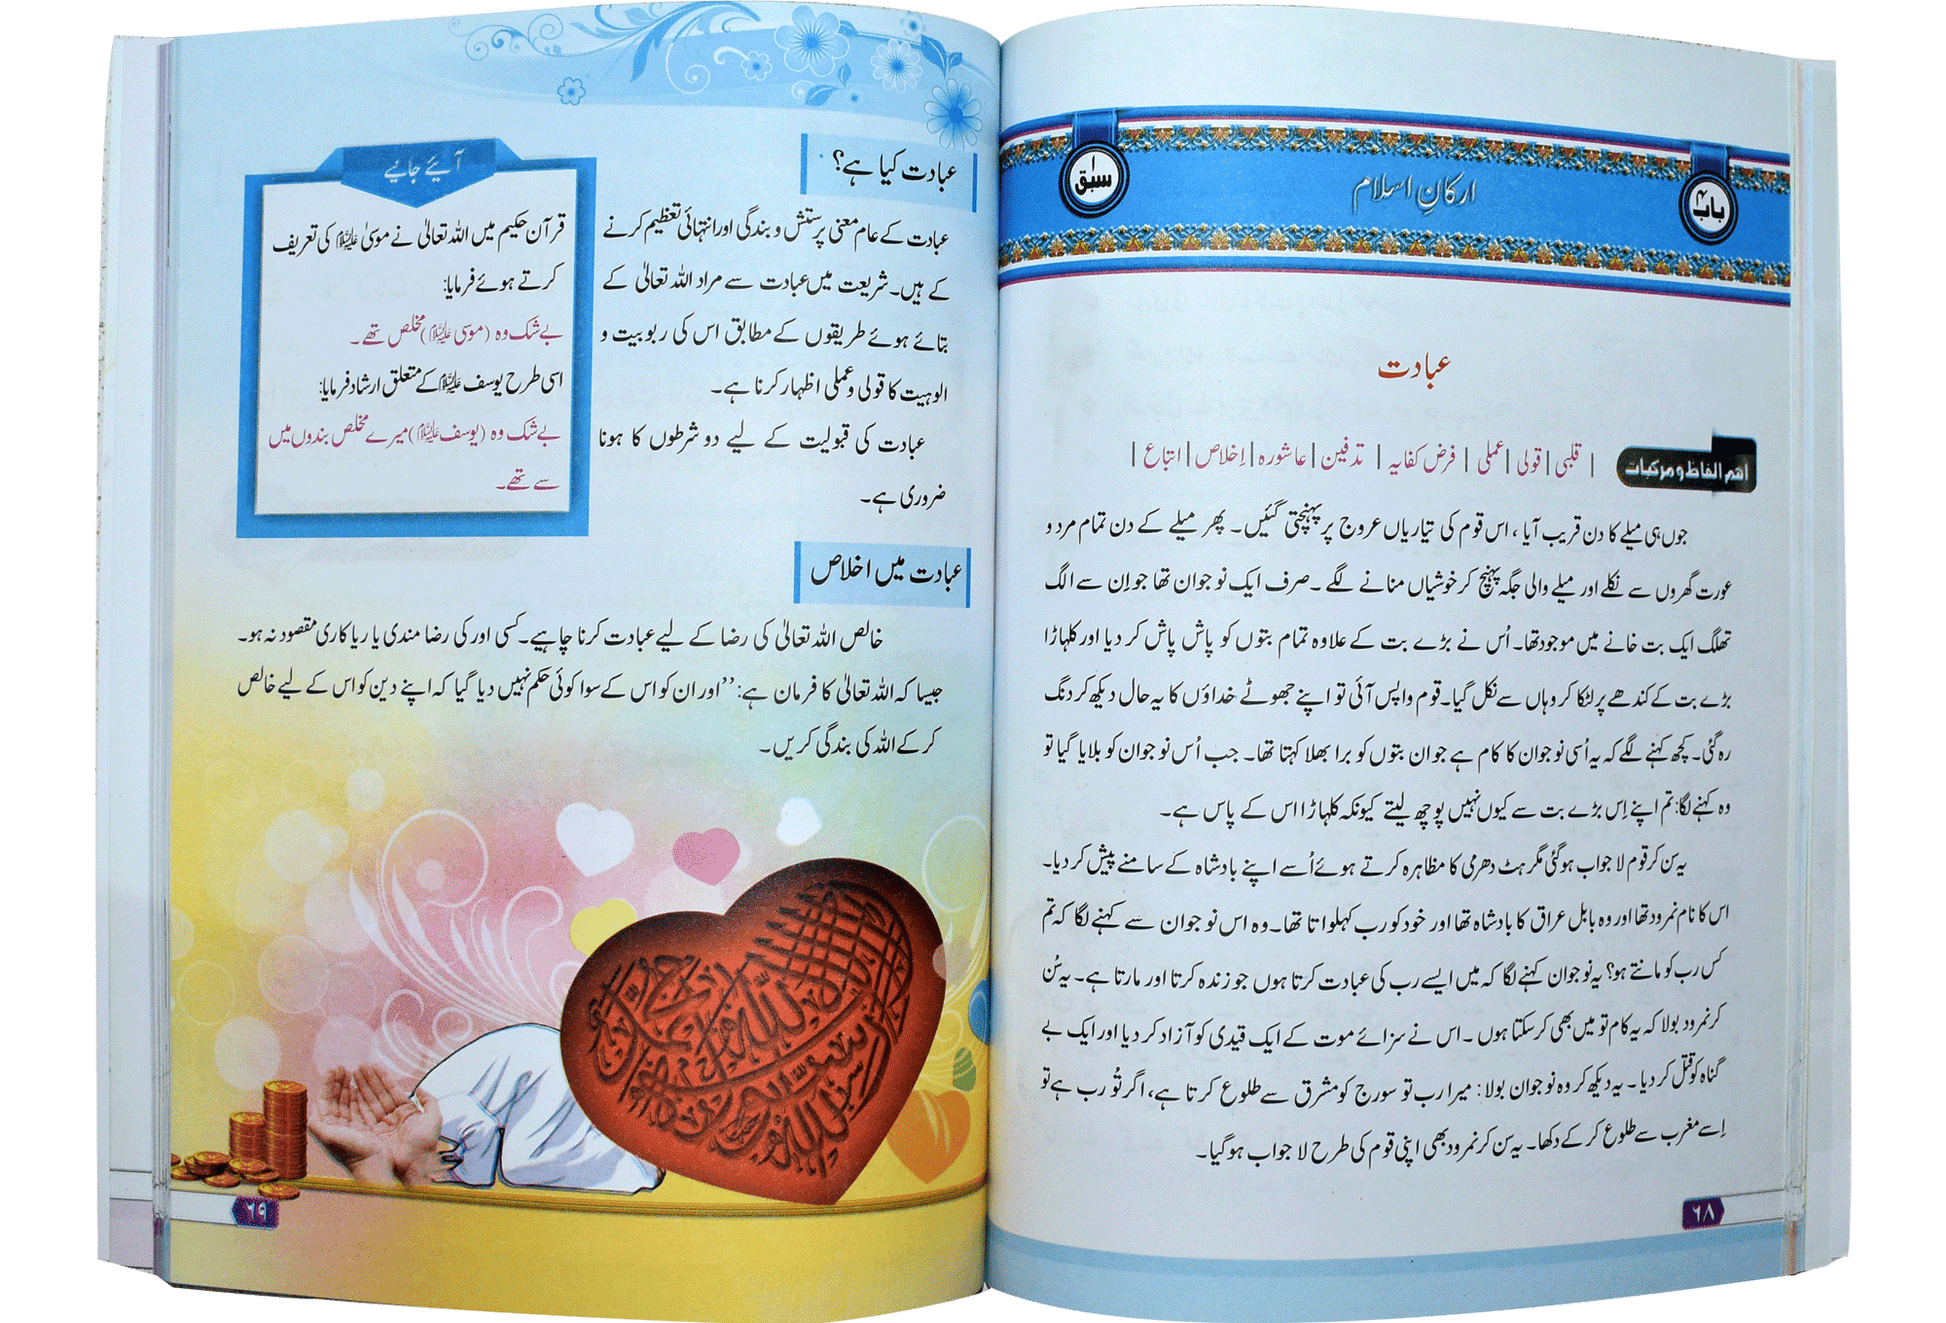 باب ۴
ارکانِ اسلام
سبق ۱
عبادت
اہم الفاظ و مرکبات
| قلبی | قولی | عملی | فرض کفایہ | تدفین | عاشورہ | اِخلاص | اتباع |
جوں ہی میلے کا دن قریب آیا ، اس قوم کی تیاریاں عروج پر پہنچتی گئیں۔ پھر میلے کے دن تمام مرد و
عورت گھروں سے نکلے اور میلے والی جگہ پہنچ کر خوشیاں منانے لگے ۔صرف ایک نوجوان تھا جو اِن سے الگ
تھلگ ایک بت خانے میں موجود تھا۔ اُس نے بڑے بت کے علاوہ تمام بتوں کو پاش پاش کر دیا اور کلہاڑا
بڑے بت کے کندھے پر لٹکا کر وہاں سے نکل گیا۔ قوم واپس آئی تو اپنے جھوٹے خداؤں کا یہ حال دیکھ کر دنگ
رہ گئی۔ کچھ کہنے لگے کہ یہ اُسی نوجوان کا کام ہے جو ان بتوں کو برا بھلا کہتا تھا۔ جب اُس نوجوان کو بلایا گیا تو
وہ کہنے لگا: تم اپنے اِس بڑے بت سے کیوں نہیں پوچھ لیتے کیونکہ کلہاڑا اس کے پاس ہے۔
یہ سن کر قوم لا جواب ہو گئی مگر ہٹ دھرمی کا مظاہرہ کرتے ہوئے اُسے اپنے بادشاہ کے سامنے پیش کر دیا۔
اس کا نام نمرود تھا اور وہ بابل عراق کا بادشاہ تھا اور خود کو رب کہلواتا تھا۔ وہ اس نوجوان سے کہنے لگا کہ تم
کس رب کو مانتے ہو؟ یہ نوجوان کہنے لگا کہ میں ایسے رب کی عبادت کرتا ہوں جو زندہ کرتا اور مارتا ہے۔ یہ سُن
کر نمرود بولا کہ یہ کام تو میں بھی کر سکتا ہوں ۔ اس نے سزائے موت کے ایک قیدی کو آزاد کر دیا اور ایک بے
گناہ کو قتل کر دیا ۔ یہ دیکھ کر وہ نوجوان بولا : میرا رب تو سورج کو مشرق سے طلوع کرتا ہے، اگر تُو رب ہے تو
اِسے مغرب سے طلوع کر کے دکھا۔ یہ سن کر نمرود بھی اپنی قوم کی طرح لا جواب ہو گیا۔
۶۸
عبادت کیا ہے؟
عبادت کے عام معنی پرستش و بندگی اور انتہائی تعظیم کرنے
کے ہیں۔ شریعت میں عبادت سے مراد اللہ تعالیٰ کے
بتائے ہوئے طریقوں کے مطابق اس کی ربوبیت و
الوہیت کا قولی و عملی اظہار کرنا ہے۔
عبادت کی قبولیت کے لیے دو شرطوں کا ہونا
ضروری ہے۔
آئیے جانیے
قرآن حکیم میں اللہ تعالیٰ نے موسیٰ علیہ السلام کی تعریف
کرتے ہوئے فرمایا:
بے شک وہ (موسیٰ علیہ السلام) مخلص تھے۔
اسی طرح یوسف علیہ السلام کے متعلق ارشاد فرمایا:
بے شک وہ (یوسف علیہ السلام) میرے مخلص بندوں میں
سے تھے۔
عبادت میں اخلاص
خالص اللہ تعالیٰ کی رضا کے لیے عبادت کرنا چاہیے۔ کسی اور کی رضا مندی یا ریاکاری مقصود نہ ہو۔
جیسا کہ اللہ تعالیٰ کا فرمان ہے: ’’اور ان کو اس کے سوا کوئی حکم نہیں دیا گیا کہ اپنے دین کو اس کے لیے خالص
کر کے اللہ کی بندگی کریں۔
۶۹